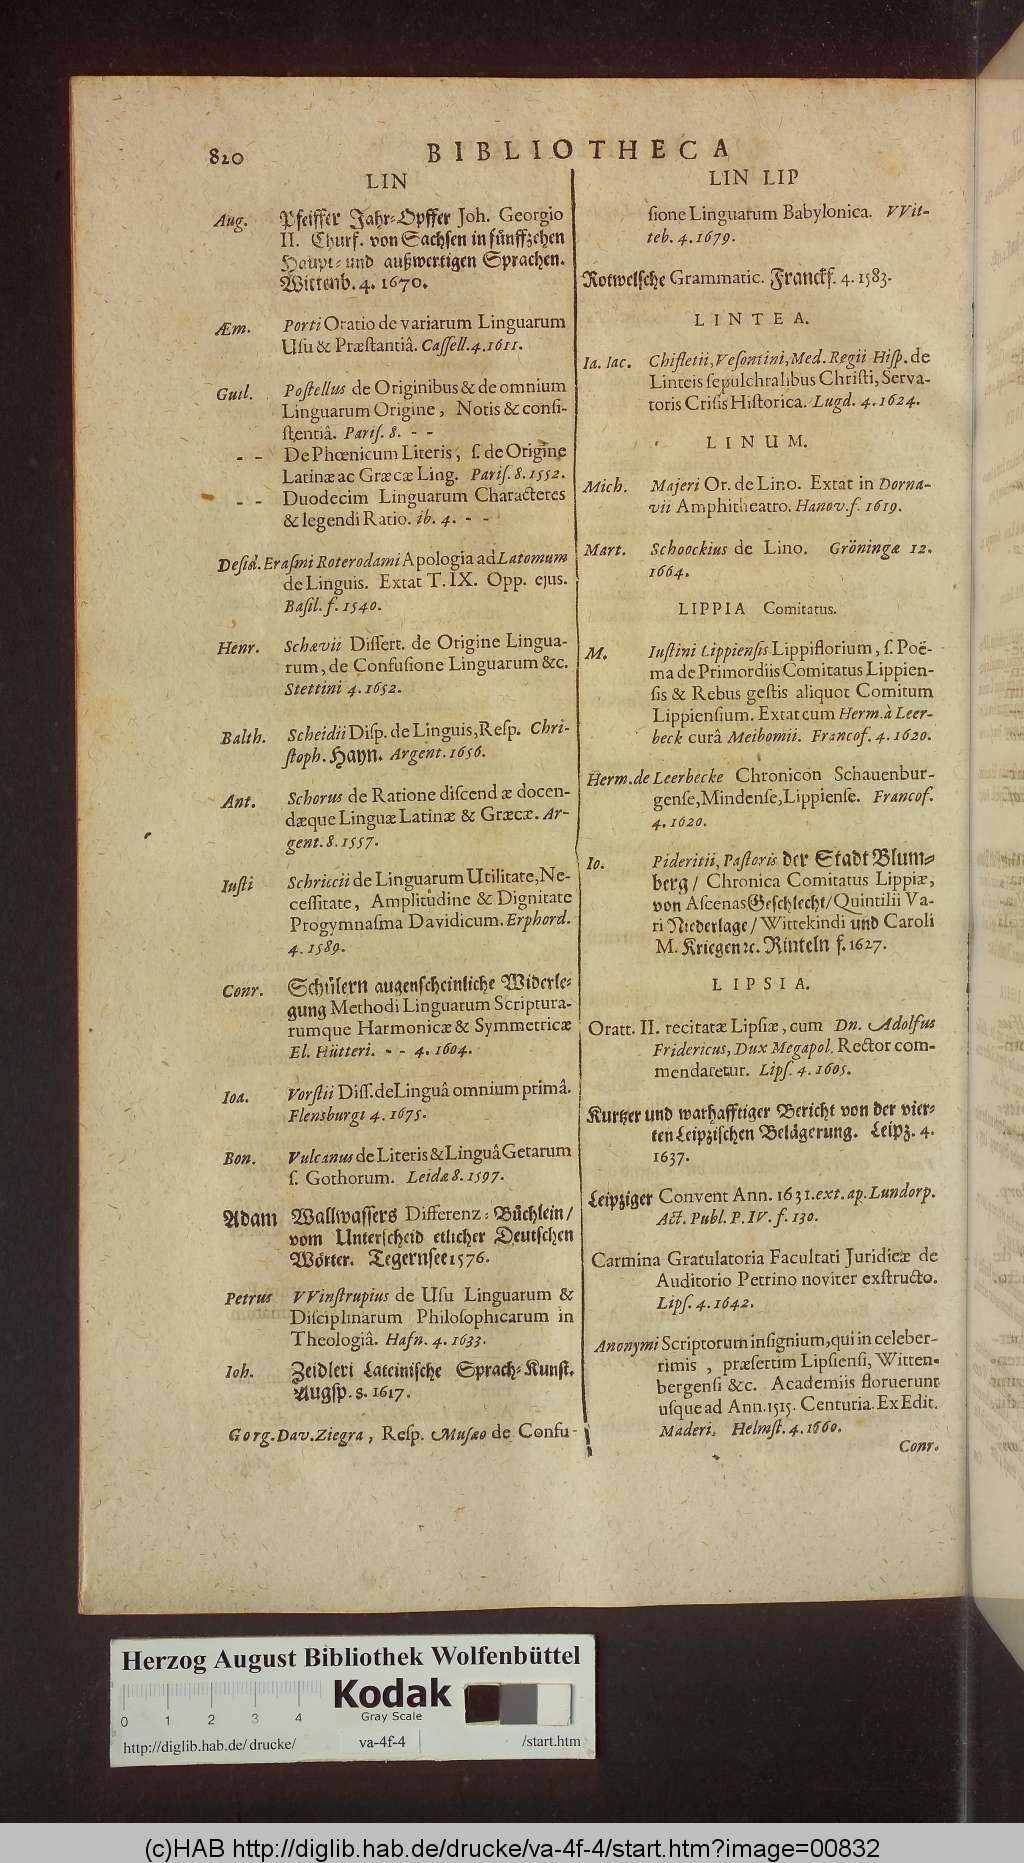 820
BIBLIOTHECA
LIN
Aug. Pfeiffer Jahr-Opffer Joh. Georgio
II. Churf. von Sachsen in fünffzehen
Haupt- und außwertigen Sprachen.
Wittenb. 4. 1670.
Æm. Porti Oratio de variarum Linguarum
Usu & Præstantiâ. Cassell. 4. 1611.
Guil. Postellus de Originibus & de omnium
Linguarum Origine, Notis & consi-
stentiâ. Paris. 8. - -
- - De Phœnicum Literis, s. de Origine
Latinæ ac Græcæ Ling. Paris. 8. 1552.
- - Duodecim Linguarum Characteres
& legendi Ratio. ib. 4. - -
Desid. Erasmi Roterodami Apologia ad Latomum
de Linguis. Extat T. IX. Opp. ejus.
Basil. f. 1540.
Henr. Schævii Dissert. de Origine Lingua-
rum, de Confusione Linguarum &c.
Stettini 4. 1652.
Balth. Scheidii Disp. de Linguis, Resp. Chri-
stoph. Hayn. Argent. 1656.
Ant. Schorus de Ratione discendæ docen-
dæque Linguæ Latinæ & Græcæ. Ar-
gent. 8. 1557.
Iusti Schriccii de Linguarum Utilitate, Ne-
cessitate, Amplitudine & Dignitate
Progymnasma Davidicum. Erphord.
4. 1589.
Conr. Schülern augenscheinliche Widerle-
gung Methodi Linguarum Scriptura-
rumque Harmonicæ & Symmetricæ
El. Hütteri. - - 4. 1604.
Ioa. Vorstii Diss. de Linguâ omnium primâ.
Flensburgi 4. 1675.
Bon. Vulcanus de Literis & Linguâ Getarum
s. Gothorum. Leidæ 8. 1597.
Adam Wallwassers Differenz-Büchlein/
vom Unterscheid etlicher Deutschen
Wörter. Tegernsee 1576.
Petrus VVinstrupius de Usu Linguarum &
Disciplinarum Philosophicarum in
Theologiâ. Hafn. 4. 1633.
Ioh. Zeidleri Lateinische Sprach-Kunst.
Augsp. 8. 1617.
Gorg. Dav. Ziegra, Resp. Musæo de Confu-
LIN LIP
sione Linguarum Babylonica. VVit-
teb. 4. 1679.
Rotwelsche Grammatic. Franckf. 4. 1583.
LINTEA.
Ia. Iac. Chifletii, Vesontini, Med. Regii Hisp. de
Linteis sepulchralibus Christi, Serva-
toris Crisis Historica. Lugd. 4. 1624.
LINUM.
Mich. Majeri Or. de Lino. Extat in Dorna-
vii Amphitheatro. Hanov. f. 1619.
Mart. Schoockius de Lino. Gröningæ 12.
1664.
LIPPIA Comitatus.
M. Iustini Lippiensis Lippiflorium, s. Poë-
ma de Primordiis Comitatus Lippien-
sis & Rebus gestis aliquot Comitum
Lippiensium. Extat cum Herm. à Leer-
beck curâ Meibomii. Francof. 4. 1620.
Herm. de Leerbecke Chronicon Schauenbur-
gense, Mindense, Lippiense. Francof.
4. 1620.
Io. Pideritii, Pastoris der Stadt Blum-
berg/ Chronica Comitatus Lippiæ,
von Ascenas Geschlecht/ Quintilii Va-
ri Niederlage/ Wittekindi und Caroli
M. Kriegen ꝛc. Rinteln f. 1627.
LIPSIA.
Oratt. II. recitatæ Lipsiæ, cum Dn. Adolfus
Fridericus, Dux Megapol. Rector com-
mendaretur. Lips. 4. 1605.
Kurtzer und warhafftiger Bericht von der vier-
ten Leipzischen Belägerung. Leipz. 4.
1637.
Leipziger Convent Ann. 1631. ext. ap. Lundorp.
Act. Publ. P. IV. f. 130.
Carmina Gratulatoria Facultati Juridicæ de
Auditorio Petrino noviter exstructo.
Lips. 4. 1642.
Anonymi Scriptorum insignium, qui in celeber-
rimis, præsertim Lipsiensi, Witten-
bergensi &c. Academiis floruerunt
usque ad Ann. 1515. Centuria. Ex Edit.
Maderi. Helmst. 4. 1660.
Conr.
Herzog August Bibliothek Wolfenbüttel
Kodak
Gray Scale
0 1 2 3 4
http://diglib.hab.de/drucke/ va-4f-4 /start.htm
(c)HAB http://diglib.hab.de/drucke/va-4f-4/start.htm?image=00832